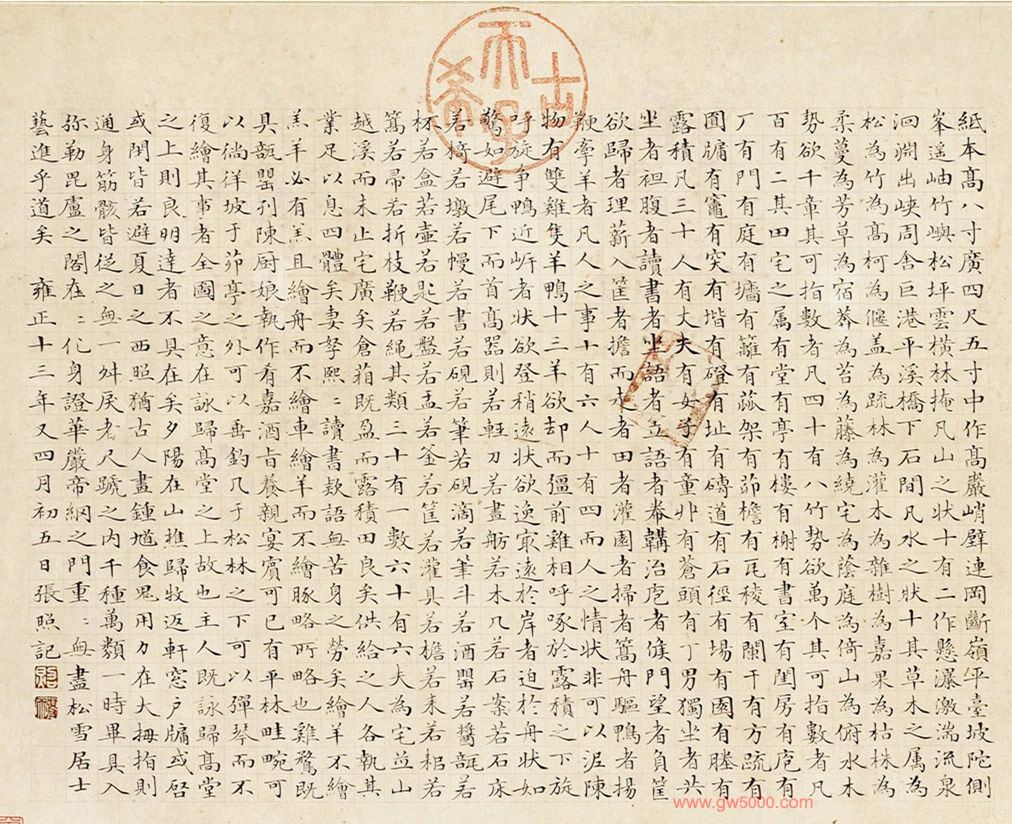 古希天子
紙本髙八寸廣四尺五寸中作髙巖峭壁連岡斷嶺平臺坡陀側
峯遙岫竹嶼松坪雲橫林掩凡山之狀十有二作懸瀑激湍流泉
洄淵出峽周舍巨港平溪橋下石間凡水之狀十其草木之属為
松為竹為髙柯為偃盖為疏林為灌木為雜樹為嘉果為枯株為
柔蔓為芳草為宿莽為苔為藤為繞宅為蔭庭為倚山為俯水木
勢欲千章其可指數者凡四十有八竹勢欲萬个其可指數者凡
百有二其田宅之属有堂有亭有樓有榭有書室有閨房有庖有
厂有門有庭有墻有籬有蓏架有茆檐有瓦稜有闌干有方疏有
圊牖有竈有突有堦有磴有址有磚道有石徑有場有園有塍有
露積凡三十人有丈夫有女子有童丱有蒼頭有丁男獨坐者共
坐者袒腹者讀書者坐語者立語者韝治庖者候門望者負筐
欲歸者理薪入筐者擔而水者田者灌園者掃者篙舟驅鴨者揚
鞭牽羊者凡人之事十有六人十有四而人之情狀非可以泥陳
物有雙雞隻羊鴨十三羊欲却而彊前雞相呼啄於露積之下旋
呼旋爭鴨近岍者狀欲登稍遠狀欲逸㝡遠於岸者迫於舟狀如
驚如避尾下而首髙器則若輕刀若畫舫若木几若石案若石床
若椅若墩若幔若書若硯若筆若硯滴若筆斗若酒罌若醬瓿若
杯若盒若壷若匙若盤若盂若釜若筐若灌具若檐若耒若耜若
篙若帚若折枝鞭若繩其類三十有一數六十有六夫為宅竝山
越溪而未止宅廣矣倉葙既盈而露積田良矣供給之人各執其
業足以息四體矣妻孥熙:讀書欵語無苦身之勞矣繪羊不繪
羔羊必有羔且繪舟而不繪車繪羊而不繪豚略所略也雞鶩既
具瓿罌刋陳厨娘執作肴嘉酒旨養親宴賓可已有平林畦畹可
以徜徉坡于茆亭之外可以垂釣几于松林之下可以彈琴而不
復繪其事者全圖之意在詠歸髙堂之上故也主人既詠歸髙堂
之上則良明達者不具在矣夕陽在山樵歸牧返軒窓戸牖或啓
或閉皆若避夏日之西照猶古人畫鍾馗食鬼用力在大拇指則
通身筋骸皆從之無一舛戾者尺號之内千種萬類一時畢具入
弥勒毘盧之閣在:化身證華嚴帝網之門重:無盡松雪居士
藝進乎道矣 雍正十三年又四月初五日張照記
www.gw5000.com